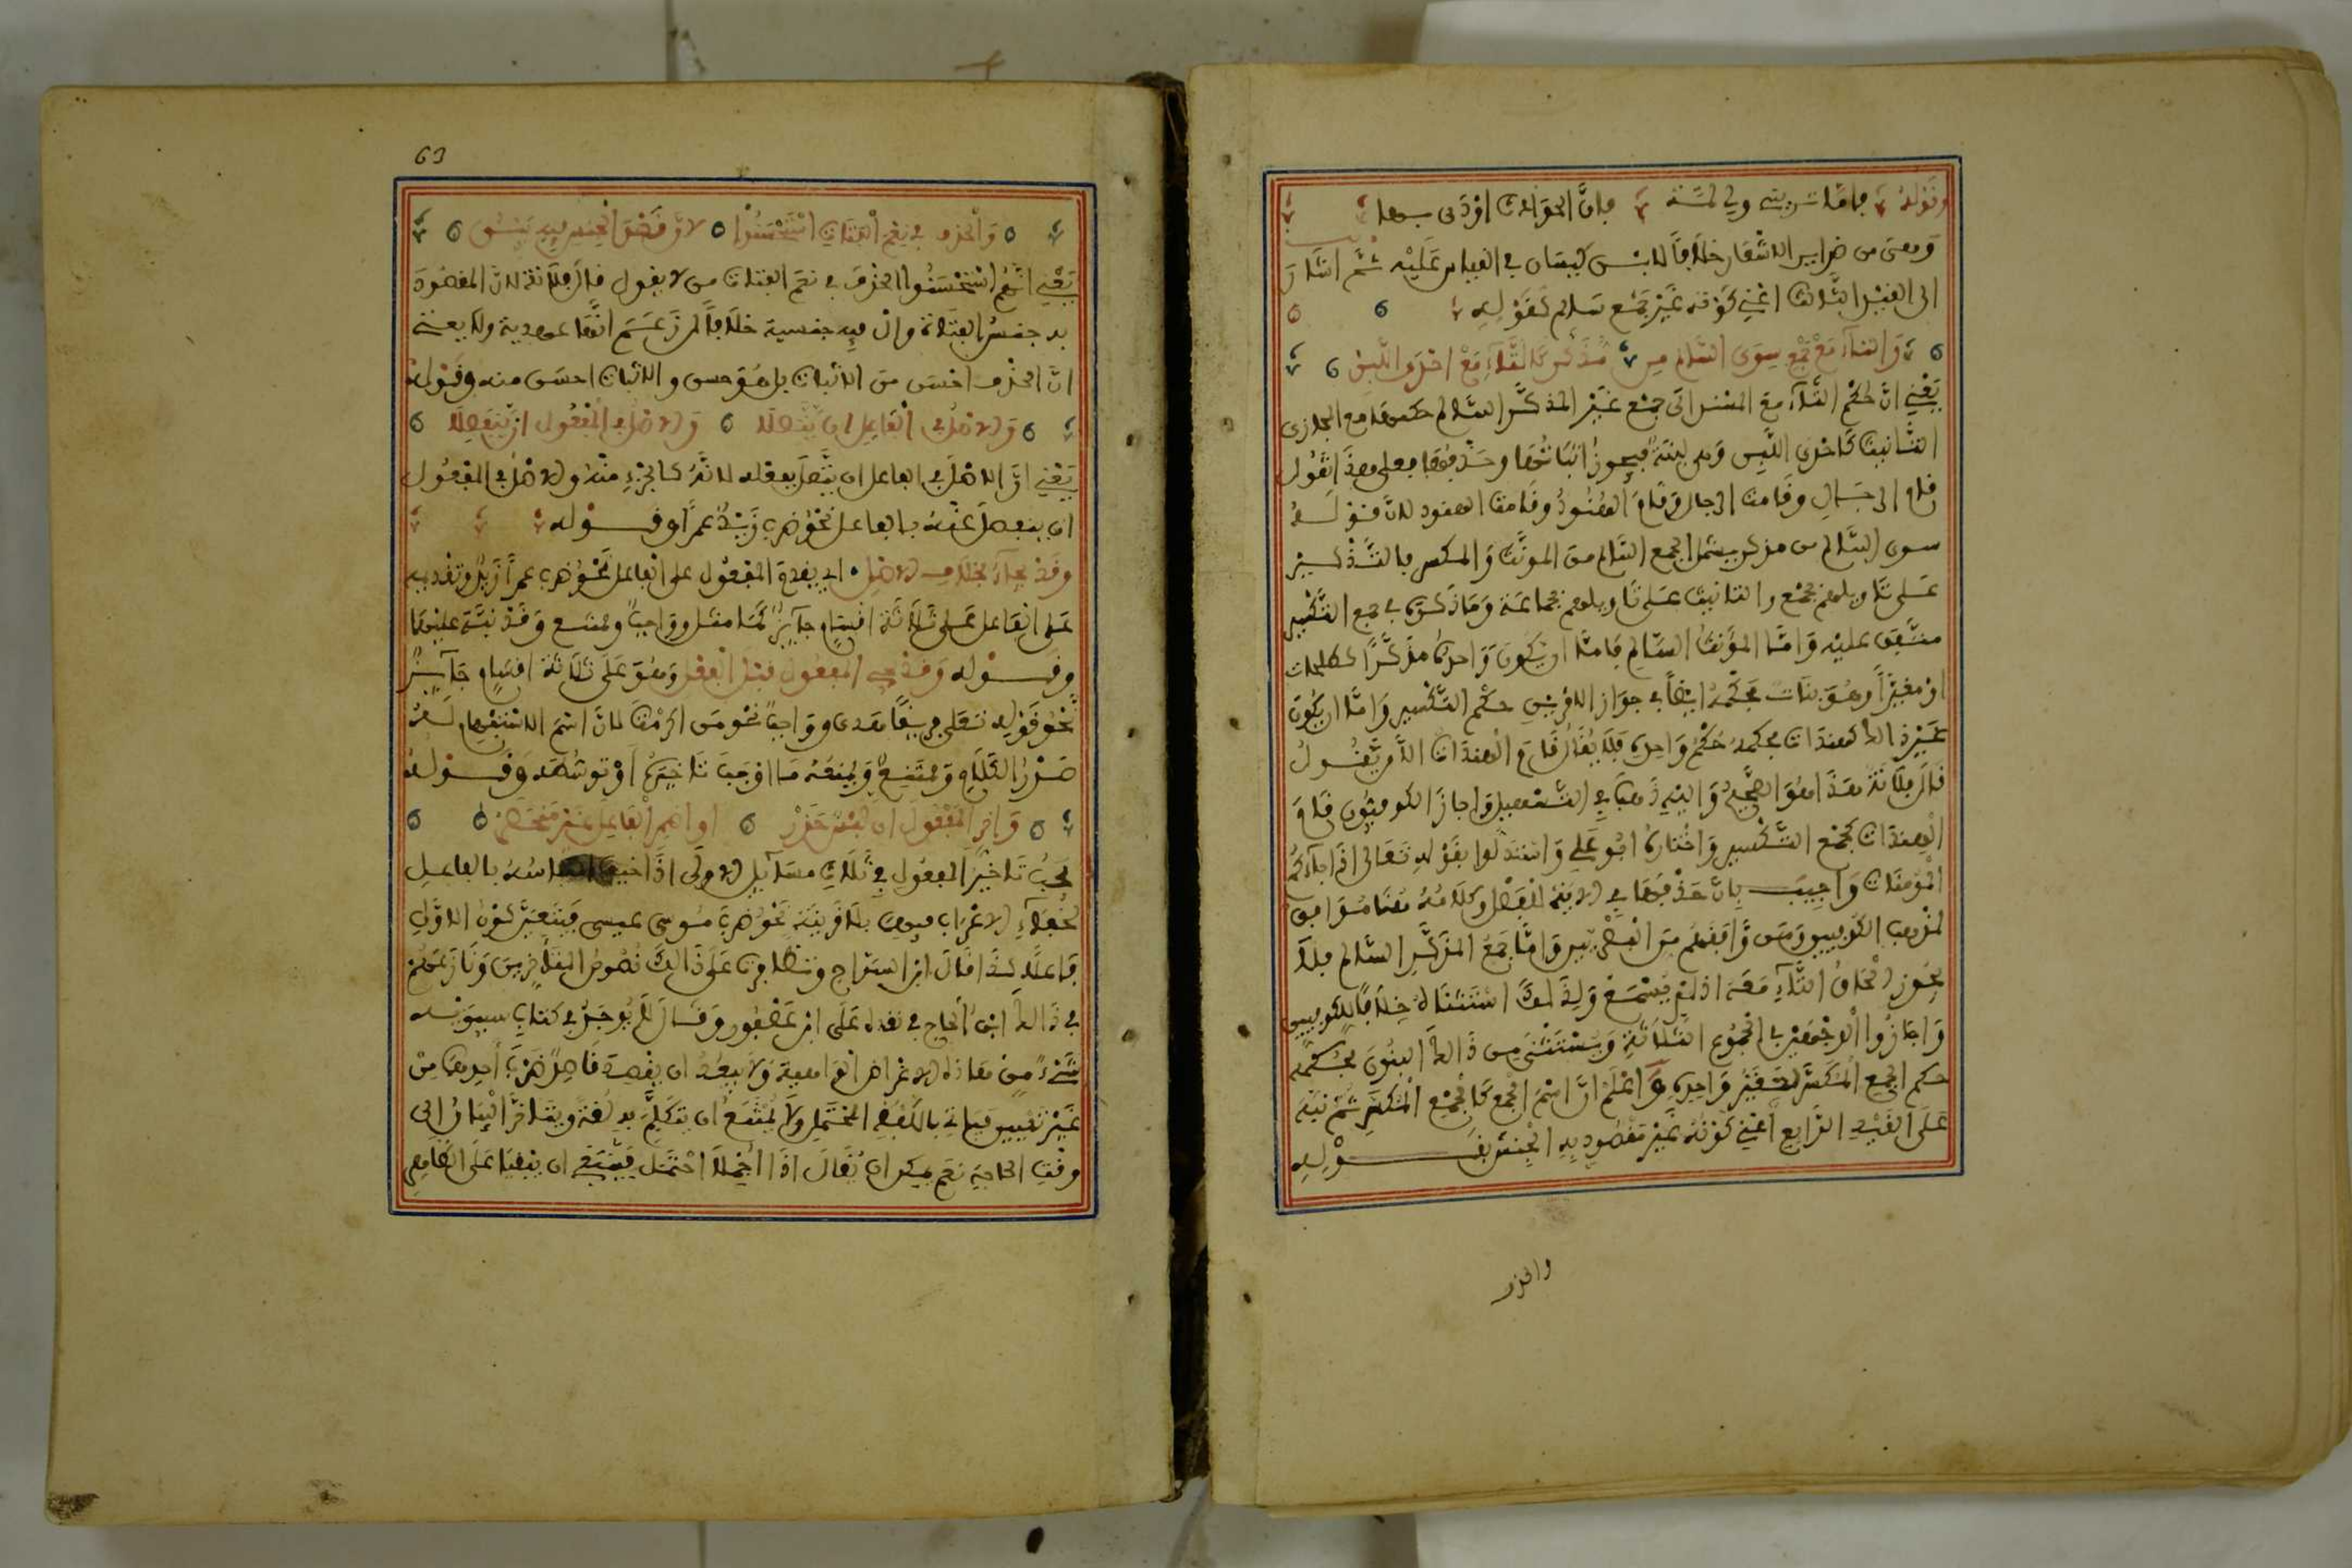 وقوله فاما تريني ولي لمة فان الحوادث اودى بها
ومعنى من ضرايير الاشعار خلافا لابن كيسان في القياس عليه ثم اشار
الى القيد الثالث اعني كونه غير جمع سالم كقوله
والتاء مع جمع سوى السالم من مذكر كالتاء مع احدى اللبن
يعني ان حكم التاء مع المسند الى جمع غير المذكر السالم حكمها مع المجازي
التانيث كاحدى اللبن وهي لبنة فيجوز اثباتها وحذفها فعلى هذا تقول
قام الرجال وقامت الرجال وقام الهنود وقامت الهنود لان قوله
سوى السالم من مذكر يشمل الجمع السالم من المونث والمكسر بالتذكير
على تاويلهم بجمع والتانيث على تاويلهم بجماعة وما ذكره في جمع التكسير
متفق عليه واما المؤنث السالم فاما ان يكون واحده مذكرا كطلحات
او مغيرا وهو بنات فحكمه ايضا في جواز الامرين حكم التكسير واما ان يكون
غير ذالك كهندات فحكمه حكم واحده فلا يقال قام الهندات الا من يقول
قال فلانة هذا هو الصحيح واليه ذهب في التسهيل واجاز الكوفيون قام
الهندات كجمع التكسير واختاره ابو علي واستدلوا بقوله تعالى اذا جاءكم
المؤمنات واجيب بان حذفها في الاية للفصل وكلامه هنا موافق
لمذهب الكوفيين ومن وافقهم من البصريين واما جمع المذكر السالم فلا
يجوز الحاق التاء معه اذ لم يسمع ولذالك استثناه خلافا للكوفيين
واجازوا الوجهين في الجموع الثلاثة ويستثنى من ذالك البنون فحكمه
حكم الجمع المكسر لتغير واحده واعلم ان اسم الجمع كالجمع المكسر ثم نبه
على القيد الرابع اعني كونه غير مقصود به الجنس بقوله
والحذف
63
والحذف في نعم الفتاة استحسنوا لان قصد الجنس فيه بين
يعني انهم استحسنوا الحذف في نعم الفتاة من لا يقول قال فلانة لان المقصود
به جنس الفتاة وال فيه جنسية خلافا لمن زعم انها عهدية ولا يعني
ان الحذف احسن من الاثبات بل هو حسن والاثبات احسن منه وقوله
والاصل في الفاعل ان يتصلا والاصل في المفعول ان ينفصلا
يعني ان الاصل في الفاعل ان يتصل بفعله لانه كالجزء منه والاصل في المفعول
ان ينفصل عنه بالفاعل نحو ضرب زيد عمرا وقوله
وقد يجاء بخلاف الاصل اي بتقدم المفعول على الفاعل نحو ضرب عمرا زيد وتقديمه
على الفاعل على ثلاثة اقسام جايز كما مثل وواجب وممتنع وقد نبه عليهما
وقوله وقد يجي المفعول قبل الفعل وهو على ثلاثة اقسام جايز
نحو قوله تعلى فريقا هدى وواجبا نحو من اكرمت لان اسم الاستفهام له
صدر الكلام وممتنع ويمنعه ما اوجب تاخيره او توسطه وقوله
واخر المفعول ان لبس حذر او اضمر الفاعل غير منحصر
يجب تاخير المفعول في ثلاث مسايل الاولى اذا خيف التباسه بالفاعل
لخفاء الاعراب فيهما بلا قرينة نحو ضرب موسى عيسى فيتعين كون الاول
فاعلا كذا قال ابن السراج وتظافرت على ذالك نصوص المتاخرين ونازعهم
في ذالك ابن الحاج في نقده على ابن عصفور وقال لم يوجد في كتاب سيبويه
شيء من هاذه الاغراض الواهية ولا يبعد ان يقصد قاصد ضرب احدهما من
غير تعيين فياتي باللفظ المحتمل ولا يمتنع ان يتكلم به لغة ويتاخر البيان الى
وقت الحاجة نعم يمكن ان يقال اذا اجمل احتمل فينبغي ان يبقى على